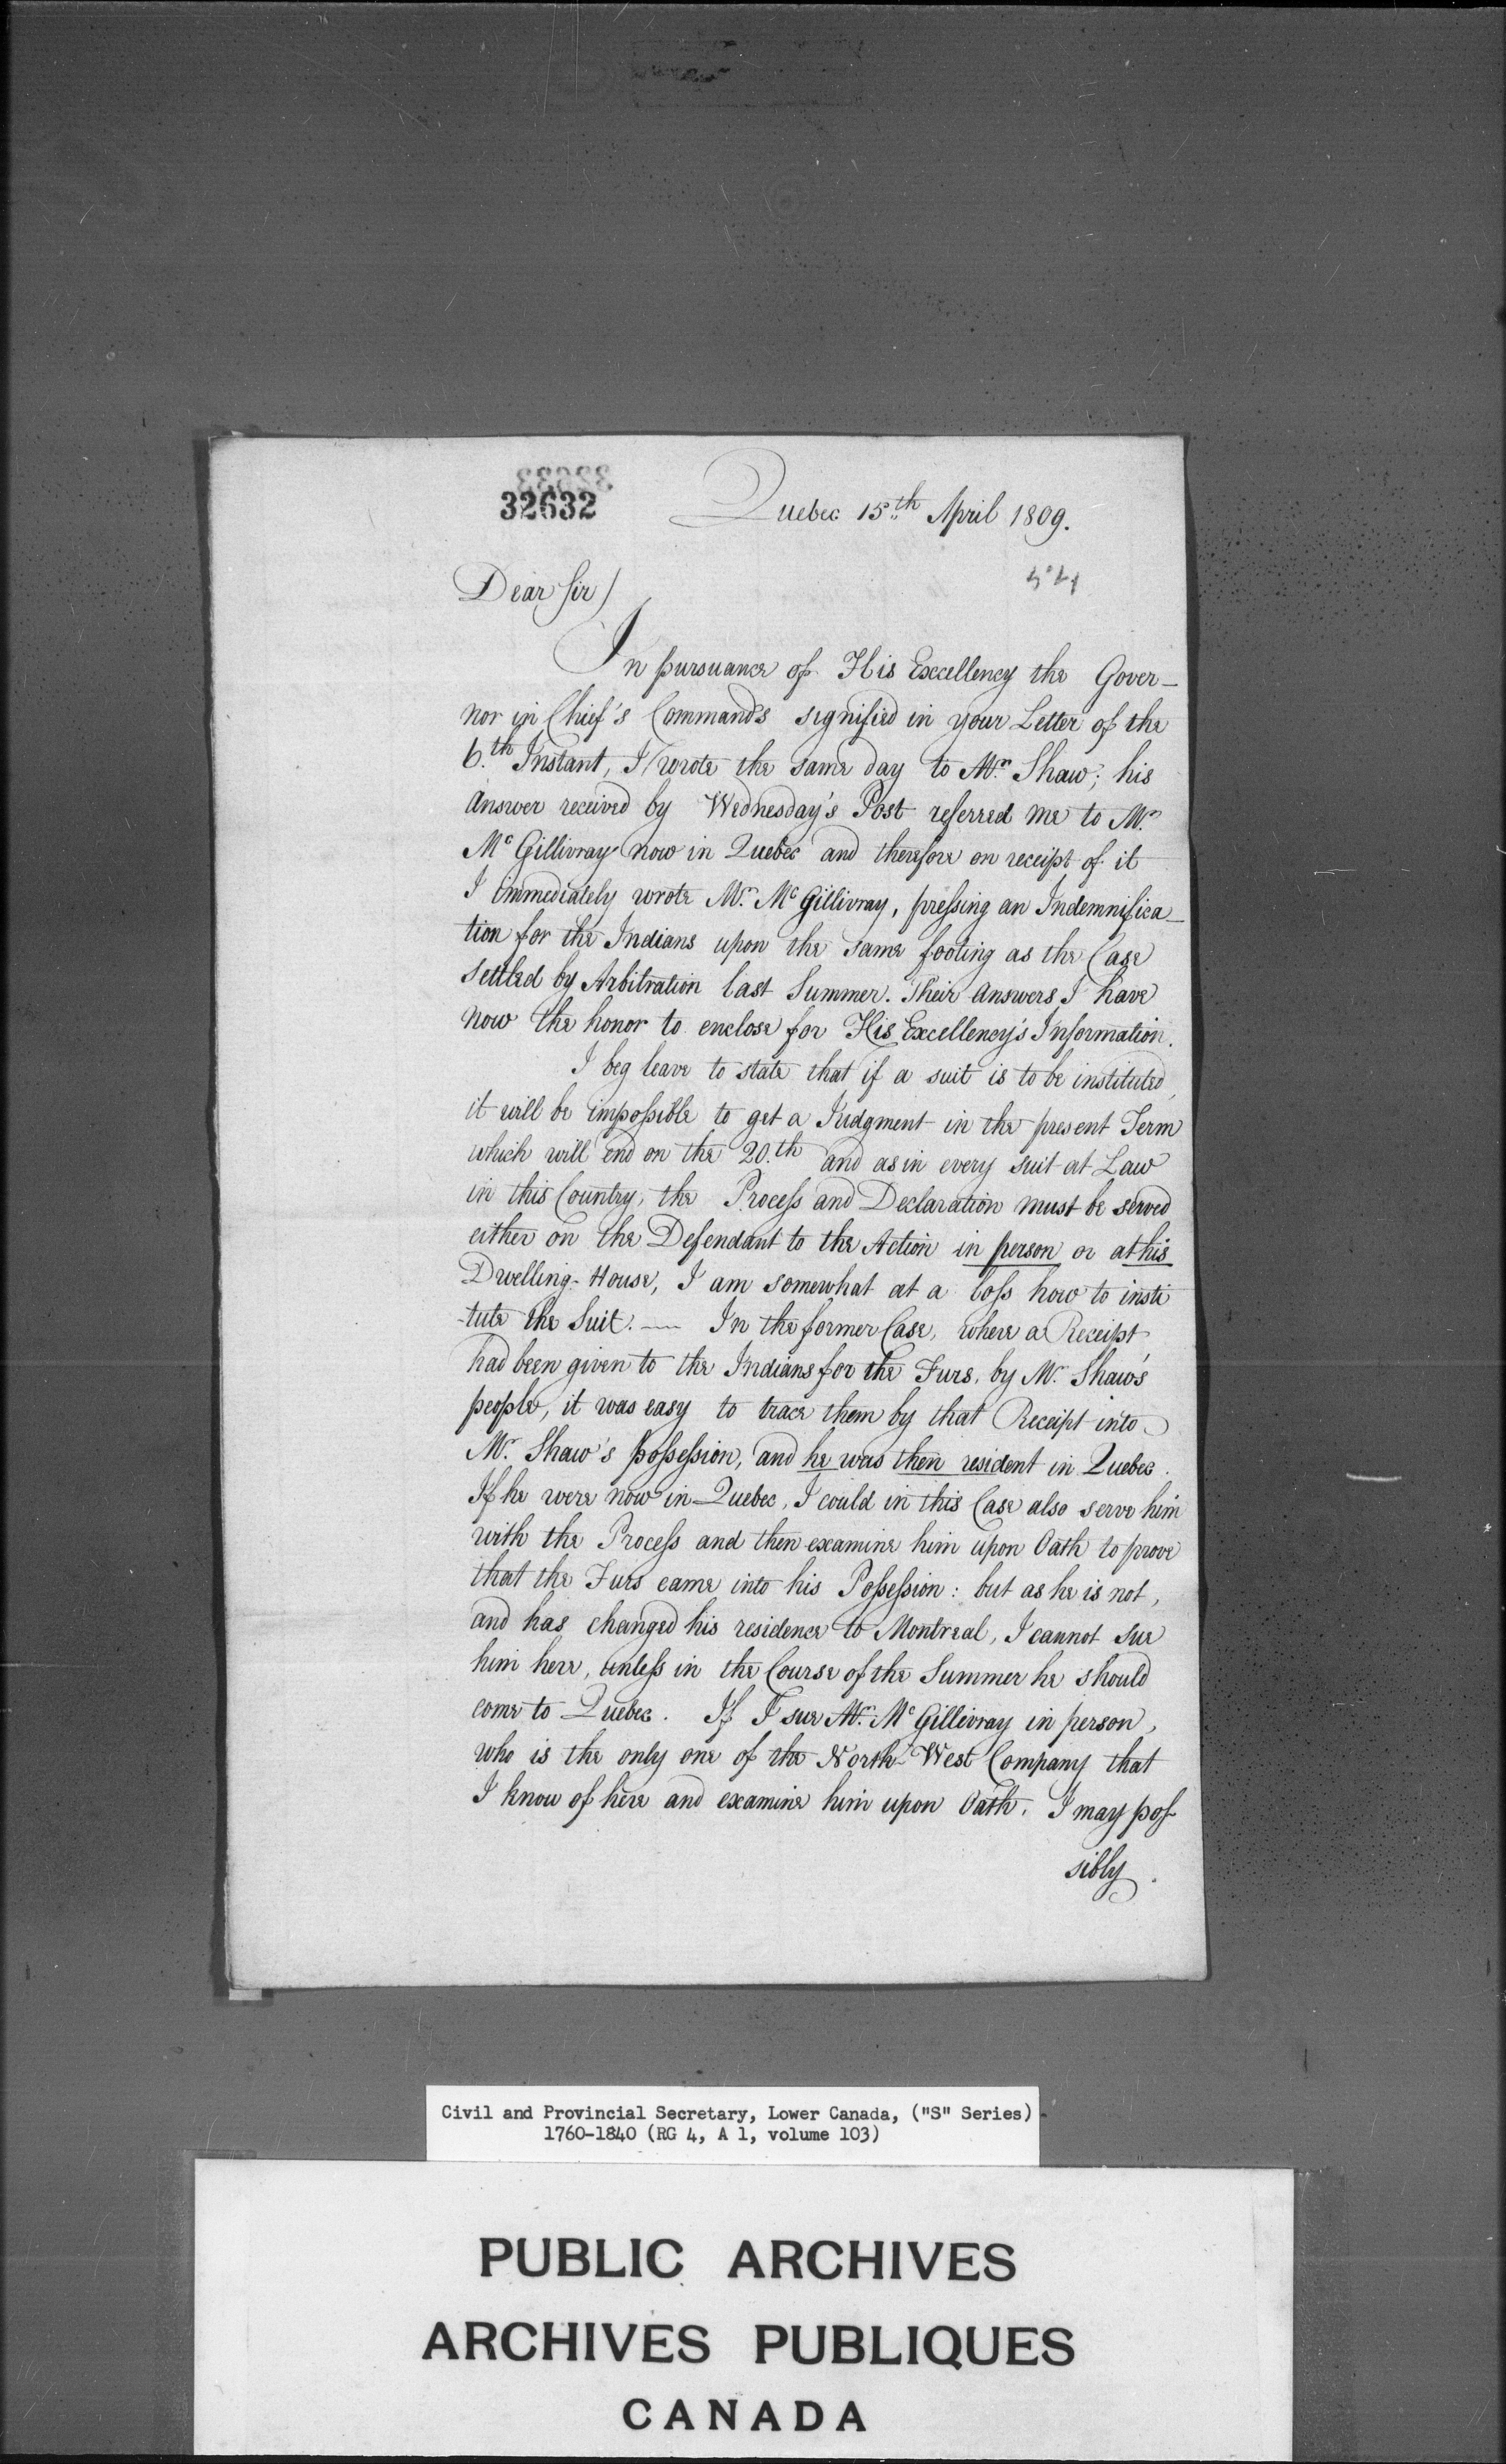 32632
Quebec 15.th April 1809.
Dear Sir/
In pursuance of His Excellency the Gover-
nor in Chief's Commands signified in your Letter of the
6.th Instant, I wrote the same day to Mr. Shaw; his
Answer received by Wednesday's Post referred me to Mr.
Mc Gillivray now in Quebec and therefore on receipt of it
I immediately wrote Mr. Mc Gillivray, pressing an Indemnifica-
tion for the Indians upon the same footing as the Case
settled by Arbitration last Summer. Their Answers I have
now the honor to enclose for His Excellency's Information.
I beg leave to state that if a suit is to be instituted,
it will be impossible to get a Judgment in the present Term
which will end on the 20.th and as in every suit at Law
in this Country, the Process and Declaration must be served
either on the Defendant to the Action in person or at his
Dwelling-House, I am somewhat at a loss how to insti
-tute the Suit. — In the former Case, where a Receipt
had been given to the Indians for the Furs, by Mr. Shaw's
people, it was easy to trace them by that Receipt into
Mr. Shaw's Possession, and he was then resident in Quebec.
If he were now in Quebec, I could in this Case also serve him
with the Process and then examine him upon Oath to prove
that the Furs came into his Possession: but as he is not,
and has changed his residence to Montreal, I cannot sue
him here, unless in the Course of the Summer he should
come to Quebec. If I sue Mr. Mc Gillivray in person,
who is the only one of the North-West Company that
I know of here and examine him upon Oath, I may pos-
sibly
Civil and Provincial Secretary, Lower Canada, ("S" Series)
1760-1840 (RG 4, A 1, volume 103)
PUBLIC ARCHIVES
ARCHIVES PUBLIQUES
CANADA